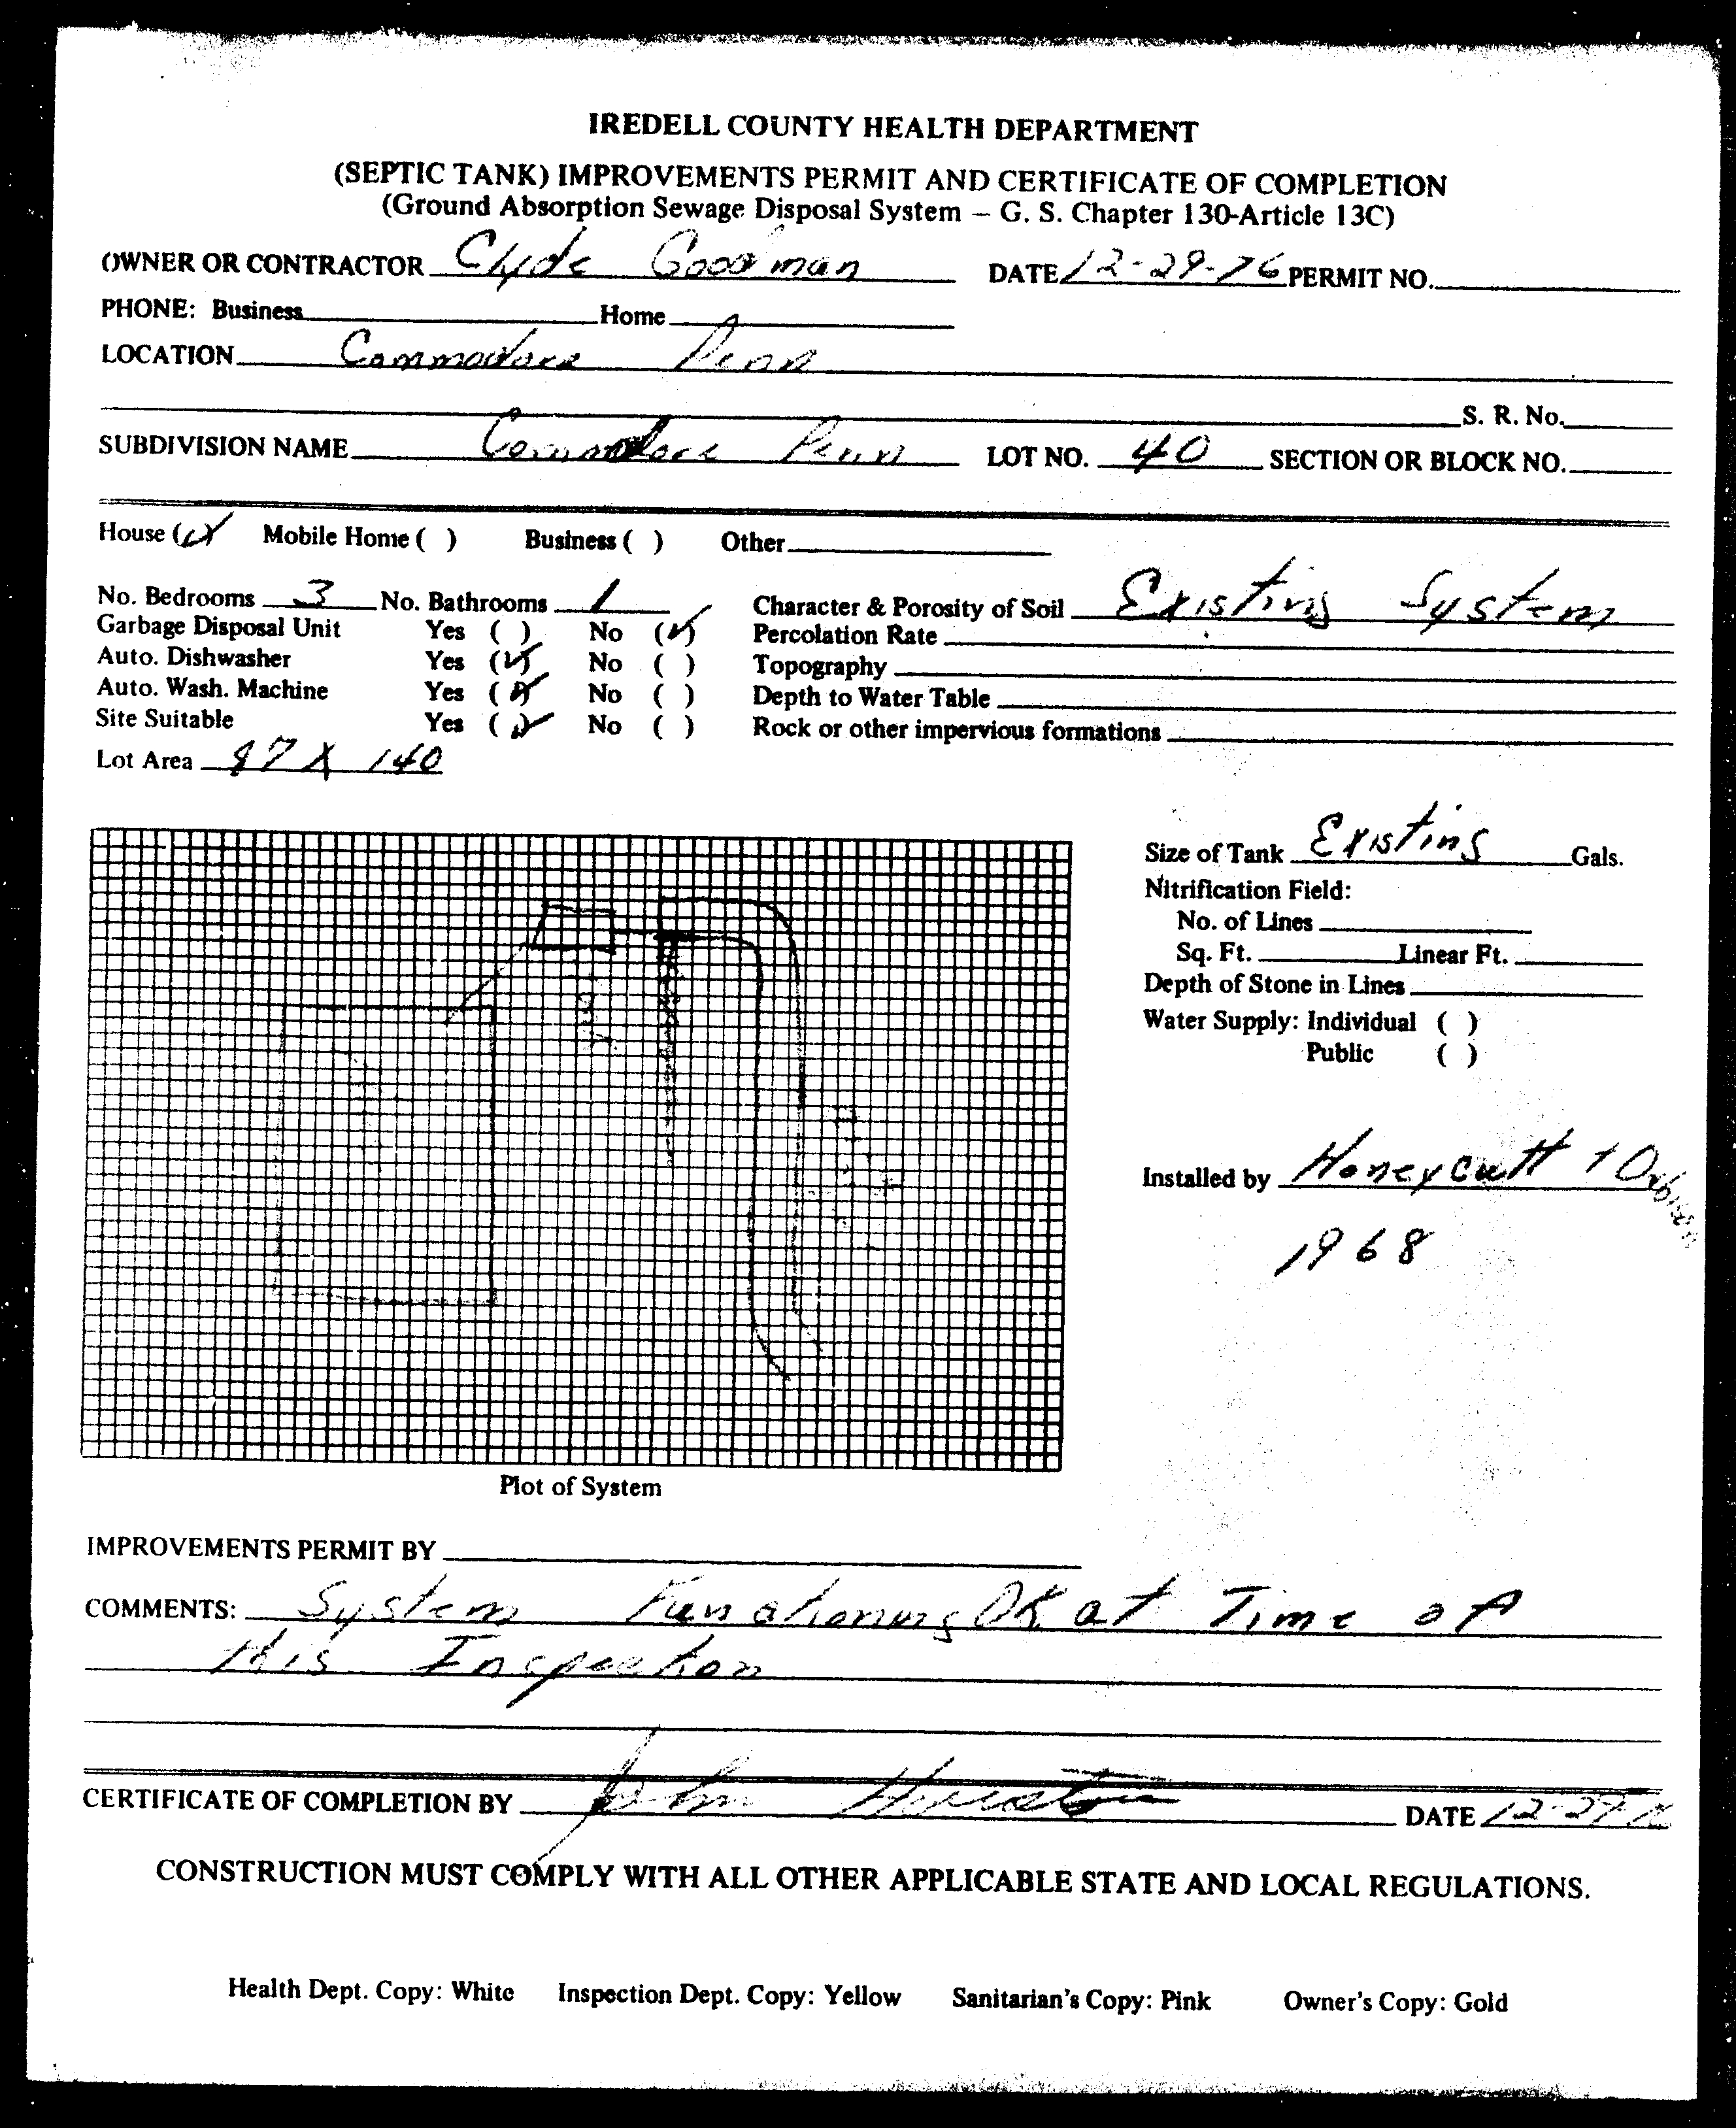 IREDELL COUNTY HEALTH DEPARTMENT
(SEPTIC TANK) IMPROVEMENTS PERMIT AND CERTIFICATE OF COMPLETION
(Ground Absorption Sewage Disposal System – G. S. Chapter 130-Article 13C)
OWNER OR CONTRACTOR Clyde Goodman DATE 12-29-76 PERMIT NO.
PHONE: Business Home
LOCATION Commodore Penn
S. R. No.
SUBDIVISION NAME Commodore Penn LOT NO. 40 SECTION OR BLOCK NO.
House (✓) Mobile Home ( ) Business ( ) Other
No. Bedrooms 3 No. Bathrooms 1 Character & Porosity of Soil Existing System
Garbage Disposal Unit Yes ( ) No (✓) Percolation Rate
Auto. Dishwasher Yes (✓) No ( ) Topography
Auto. Wash. Machine Yes (✓) No ( ) Depth to Water Table
Site Suitable Yes (✓) No ( ) Rock or other impervious formations
Lot Area 87 X 140
Size of Tank Existing Gals.
Nitrification Field:
No. of Lines
Sq. Ft. Linear Ft.
Depth of Stone in Lines
Water Supply: Individual ( )
Public ( )
Installed by Honeycutt +
1968
Plot of System
IMPROVEMENTS PERMIT BY
COMMENTS: System Functioning OK at Time of
this Inspection
CERTIFICATE OF COMPLETION BY John DATE 12-29-76
CONSTRUCTION MUST COMPLY WITH ALL OTHER APPLICABLE STATE AND LOCAL REGULATIONS.
Health Dept. Copy: White Inspection Dept. Copy: Yellow Sanitarian's Copy: Pink Owner's Copy: Gold